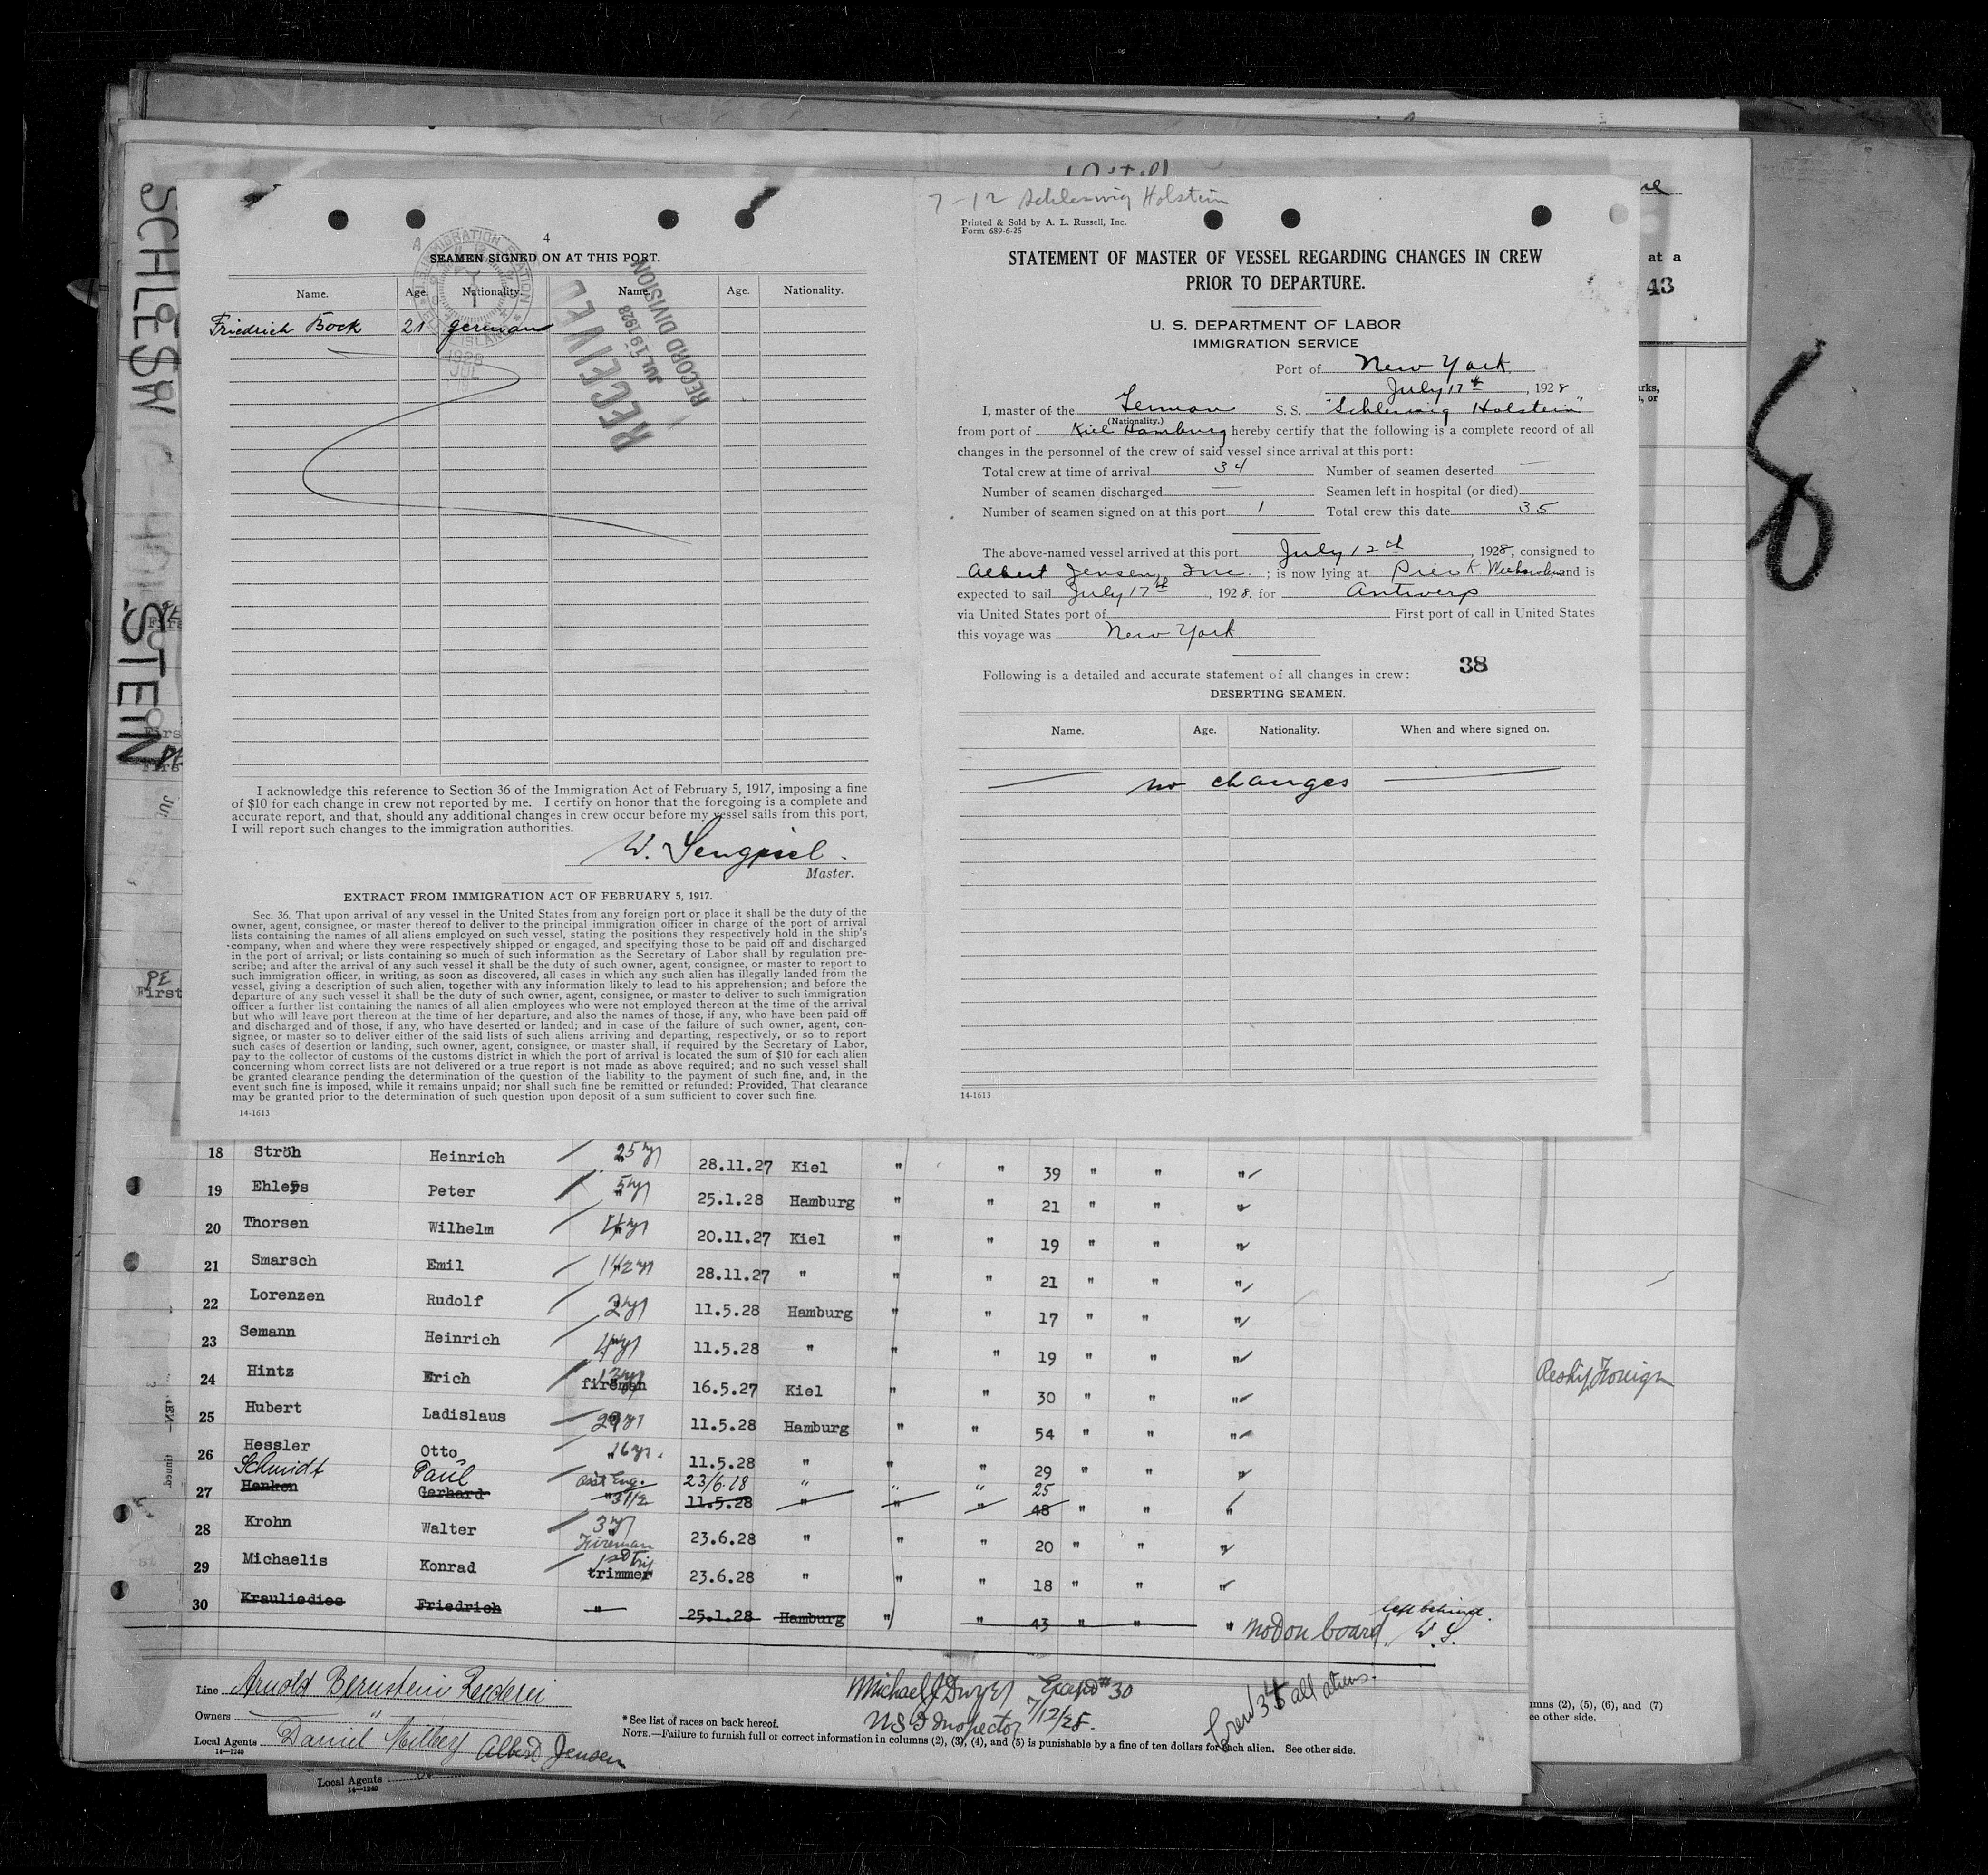 SCHLESWIG HOLSTEIN
4
SEAMEN SIGNED ON AT THIS PORT.
Name. Age. Nationality. Name. Age. Nationality.
Friedrich Bock 21 german
U.S. IMMIGRATION STATION
1928
JUL
RECEIVED
JUL 19 1928
RECORD DIVISION
I acknowledge this reference to Section 36 of the Immigration Act of February 5, 1917, imposing a fine
of $10 for each change in crew not reported by me. I certify on honor that the foregoing is a complete and
accurate report, and that, should any additional changes in crew occur before my vessel sails from this port,
I will report such changes to the immigration authorities.
W.
Master.
EXTRACT FROM IMMIGRATION ACT OF FEBRUARY 5, 1917.
Sec. 36. That upon arrival of any vessel in the United States from any foreign port or place it shall be the duty of the
owner, agent, consignee, or master thereof to deliver to the principal immigration officer in charge of the port of arrival
lists containing the names of all aliens employed on such vessel, stating the positions they respectively hold in the ship's
company, when and where they were respectively shipped or engaged, and specifying those to be paid off and discharged
in the port of arrival; or lists containing so much of such information as the Secretary of Labor shall by regulation pre-
scribe; and after the arrival of any such vessel it shall be the duty of such owner, agent, consignee, or master to report to
such immigration officer, in writing, as soon as discovered, all cases in which any such alien has illegally landed from the
vessel, giving a description of such alien, together with any information likely to lead to his apprehension; and before the
departure of any such vessel it shall be the duty of such owner, agent, consignee, or master to deliver to such immigration
officer a further list containing the names of all alien employees who were not employed thereon at the time of the arrival
but who will leave port thereon at the time of her departure, and also the names of those, if any, who have been paid off
and discharged and of those, if any, who have deserted or landed; and in case of the failure of such owner, agent, con-
signee, or master so to deliver either of the said lists of such aliens arriving and departing, respectively, or so to report
such cases of desertion or landing, such owner, agent, consignee, or master shall, if required by the Secretary of Labor,
pay to the collector of customs of the customs district in which the port of arrival is located the sum of $10 for each alien
concerning whom correct lists are not delivered or a true report is not made as above required; and no such vessel shall
be granted clearance pending the determination of the question of the liability to the payment of such fine, and, in the
event such fine is imposed, while it remains unpaid; nor shall such fine be remitted or refunded: Provided, That clearance
may be granted prior to the determination of such question upon deposit of a sum sufficient to cover such fine.
14-1613
7-12 Schleswig Holstein
Printed & Sold by A. L. Russell, Inc.
Form 689-6-25
STATEMENT OF MASTER OF VESSEL REGARDING CHANGES IN CREW
PRIOR TO DEPARTURE.
U. S. DEPARTMENT OF LABOR
IMMIGRATION SERVICE
Port of New York
July 17th, 1928
I, master of the German S. S. "Schleswig Holstein"
(Nationality.)
from port of Kiel Hamburg hereby certify that the following is a complete record of all
changes in the personnel of the crew of said vessel since arrival at this port:
Total crew at time of arrival 34 Number of seamen deserted —
Number of seamen discharged — Seamen left in hospital (or died)
Number of seamen signed on at this port 1 Total crew this date 35
The above-named vessel arrived at this port July 12th, 1928, consigned to
Albert Jensen, Inc. ; is now lying at Pier K. Weehawken and is
expected to sail July 17th, 1928. for Antwerp
via United States port of First port of call in United States
this voyage was New York
38
Following is a detailed and accurate statement of all changes in crew:
DESERTING SEAMEN.
Name. Age. Nationality. When and where signed on.
— no changes —
14-1613
at a
43
18 Ströh Heinrich 25 yr 28.11.27 Kiel " " 39 " " "
19 Ehlers Peter 5 yr 25.1.28 Hamburg " " 21 " " "
20 Thorsen Wilhelm 20.11.27 Kiel " " 19 " " "
21 Smarsch Emil 1 1/2 yr 28.11.27 " " " 21 " " "
22 Lorenzen Rudolf 2 yr 11.5.28 Hamburg " " 17 " " "
23 Semann Heinrich 4 yr 11.5.28 " " " 19 " " "
24 Hintz Erich fireman 16.5.27 Kiel " " 30 " " "
Reship Foreign
25 Hubert Ladislaus 11.5.28 Hamburg " " 54 " " "
26 Hessler Otto 16 yr. 11.5.28 " " " 29 " " "
Schmidt Paul asst Eng. 23/6.28 " " " 25
27 Henken Gerhard 11.5.28 " " " 48 " " "
28 Krohn Walter 3 yr 23.6.28 " " " 20 " " "
Fireman
29 Michaelis Konrad 1st Trip trimmer 23.6.28 " " " 18 " " "
30 Krauliedies Friedrich " 25.1.28 Hamburg " " 43 " " " not on board left behind.
W. S.
Line Arnold Bernstein Rederei
Owners "
Local Agents Daniel Albert Jensen
14—1240
Michael J Dwyer
US I Inspector 7/12/28.
Crew 34 all aliens.
* See list of races on back hereof.
NOTE.—Failure to furnish full or correct information in columns (2), (3), (4), and (5) is punishable by a fine of ten dollars for each alien. See other side.
umns (2), (5), (6), and (7)
ee other side.
Local Agents
14—1240